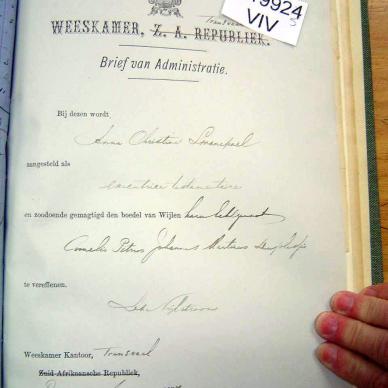 19924
VIV
Transvaal
WEESKAMER, Z. A. REPUBLIEK.
Brief van Administratie.
Bij dezen wordt
Anna Christina
aangesteld als
executrice testamentaire
en zoodoende gemagtigd den boedel van Wijlen haren echtgenoot
Cornelis Petrus Johannes
te vereffenen.
Weeskamer Kantoor, Transvaal
Zuid Afrikaansche Republiek,